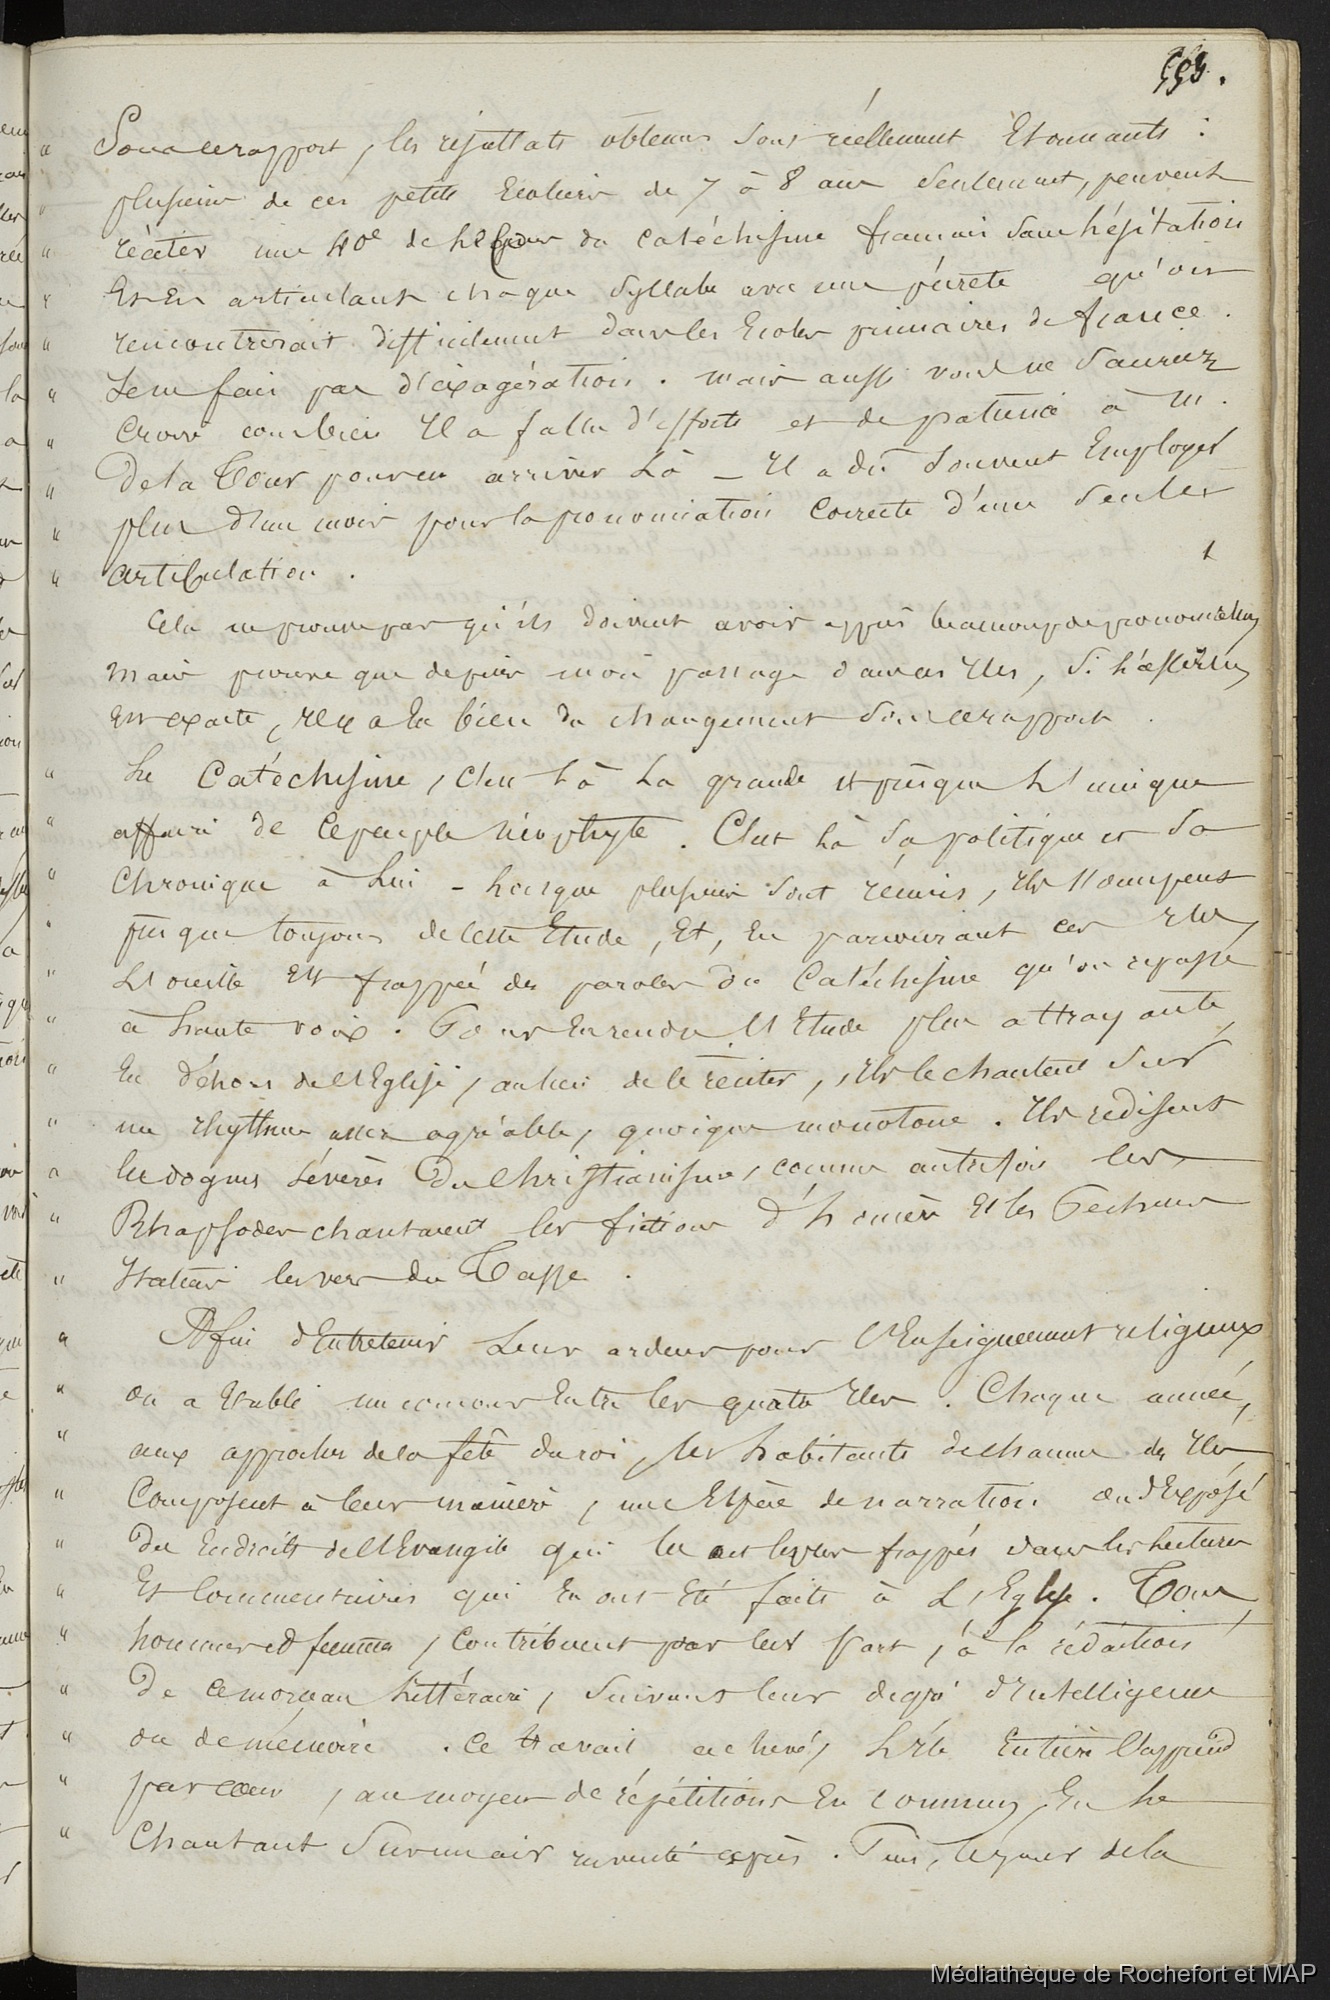 553.
" Sous ce rapport, les résultats obtenus sont réellement Etonnants :
" plusieurs de ces petits Ecoliers de 7 à 8 ans seulement, peuvent
" réciter une 40e de pages du catéchisme français sans hésitation
" Et En articulant chaque syllabe avec une pureté qu'on
" rencontrerait difficilement dans les Ecoles primaires de france .
" Je ne fais pas d'exagération . mais aussi vous ne sauriez
" Croire combien Il a fallu d'efforts et de patience à M.
" De la Tour pour en arriver Là _ Il a dû souvent Employer
" plus d'un mois pour la prononciation Correcte d'une seule
" articulation .
Cela ne prouve pas qu'ils doivent avoir appris beaucoup de prononciation
Mais prouve que depuis mon passage dans ces Iles, si l'assertion
Est exacte, Il y a Eu bien du changement sous ce rapport .
" Le Catéchisme, C'est Là La grande et presque L'unique
" affaire de Ce peuple néophyte . C'est Là sa politique et sa
" Chronique à Lui - Lorsque plusieurs sont réunis, Ils s'occupent
" presque toujours de Cette Etude, Et, En parcourant ces Iles,
" L'oreille Est frappée des paroles du Catéchisme qu'on repasse
" à haute voix . Pour En rendre L'Etude plus attrayante
" En dehors de L'Eglise, au lieu de le réciter, Ils le chantent sur
" un rhythme assez agréable, quoique monotone . Ils redisent
" les dogmes sévères du Christianisme, comme autrefois les
" Rhapsodes chantaient les fictions d'homère Et les Pecheurs
" Italiens les vers du Tasse .
" Afin d'Entretenir Leur ardeur pour L'Enseignement religieux
" on a Etabli un concours Entre les quatre Iles . Chaque année,
" aux approches de la fête du roi, les habitants de chacune des Iles
" Composent à leur manière, une Espèce de narration ou d'Exposé
" Des Endroits de L'Evangile qui les ont le plus frappés dans les Lectures
" Et Commentaires qui En ont Eté faits à L'Eglise . Tous,
" hommes et femmes, Contribuent pour leur part, à la rédaction
" De ce morceau Littéraire, suivant leur degré d'Intelligence
" ou de mémoire . Ce travail achevé, L'Ile Entière L'apprend
" par cœur, au moyen de répétitions En commun, En Le
" Chantant sur un air inventé exprès . Puis, le jour de la
Médiathèque de Rochefort et MAP